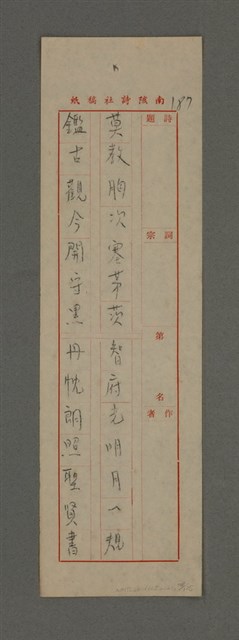 南陔詩社稿紙
187
詩題
詞宗
第 名
作者
莫教胸次塞茅茨智府竞明月一規
鑑古觀今開守黑丹忱朗照聖賢書